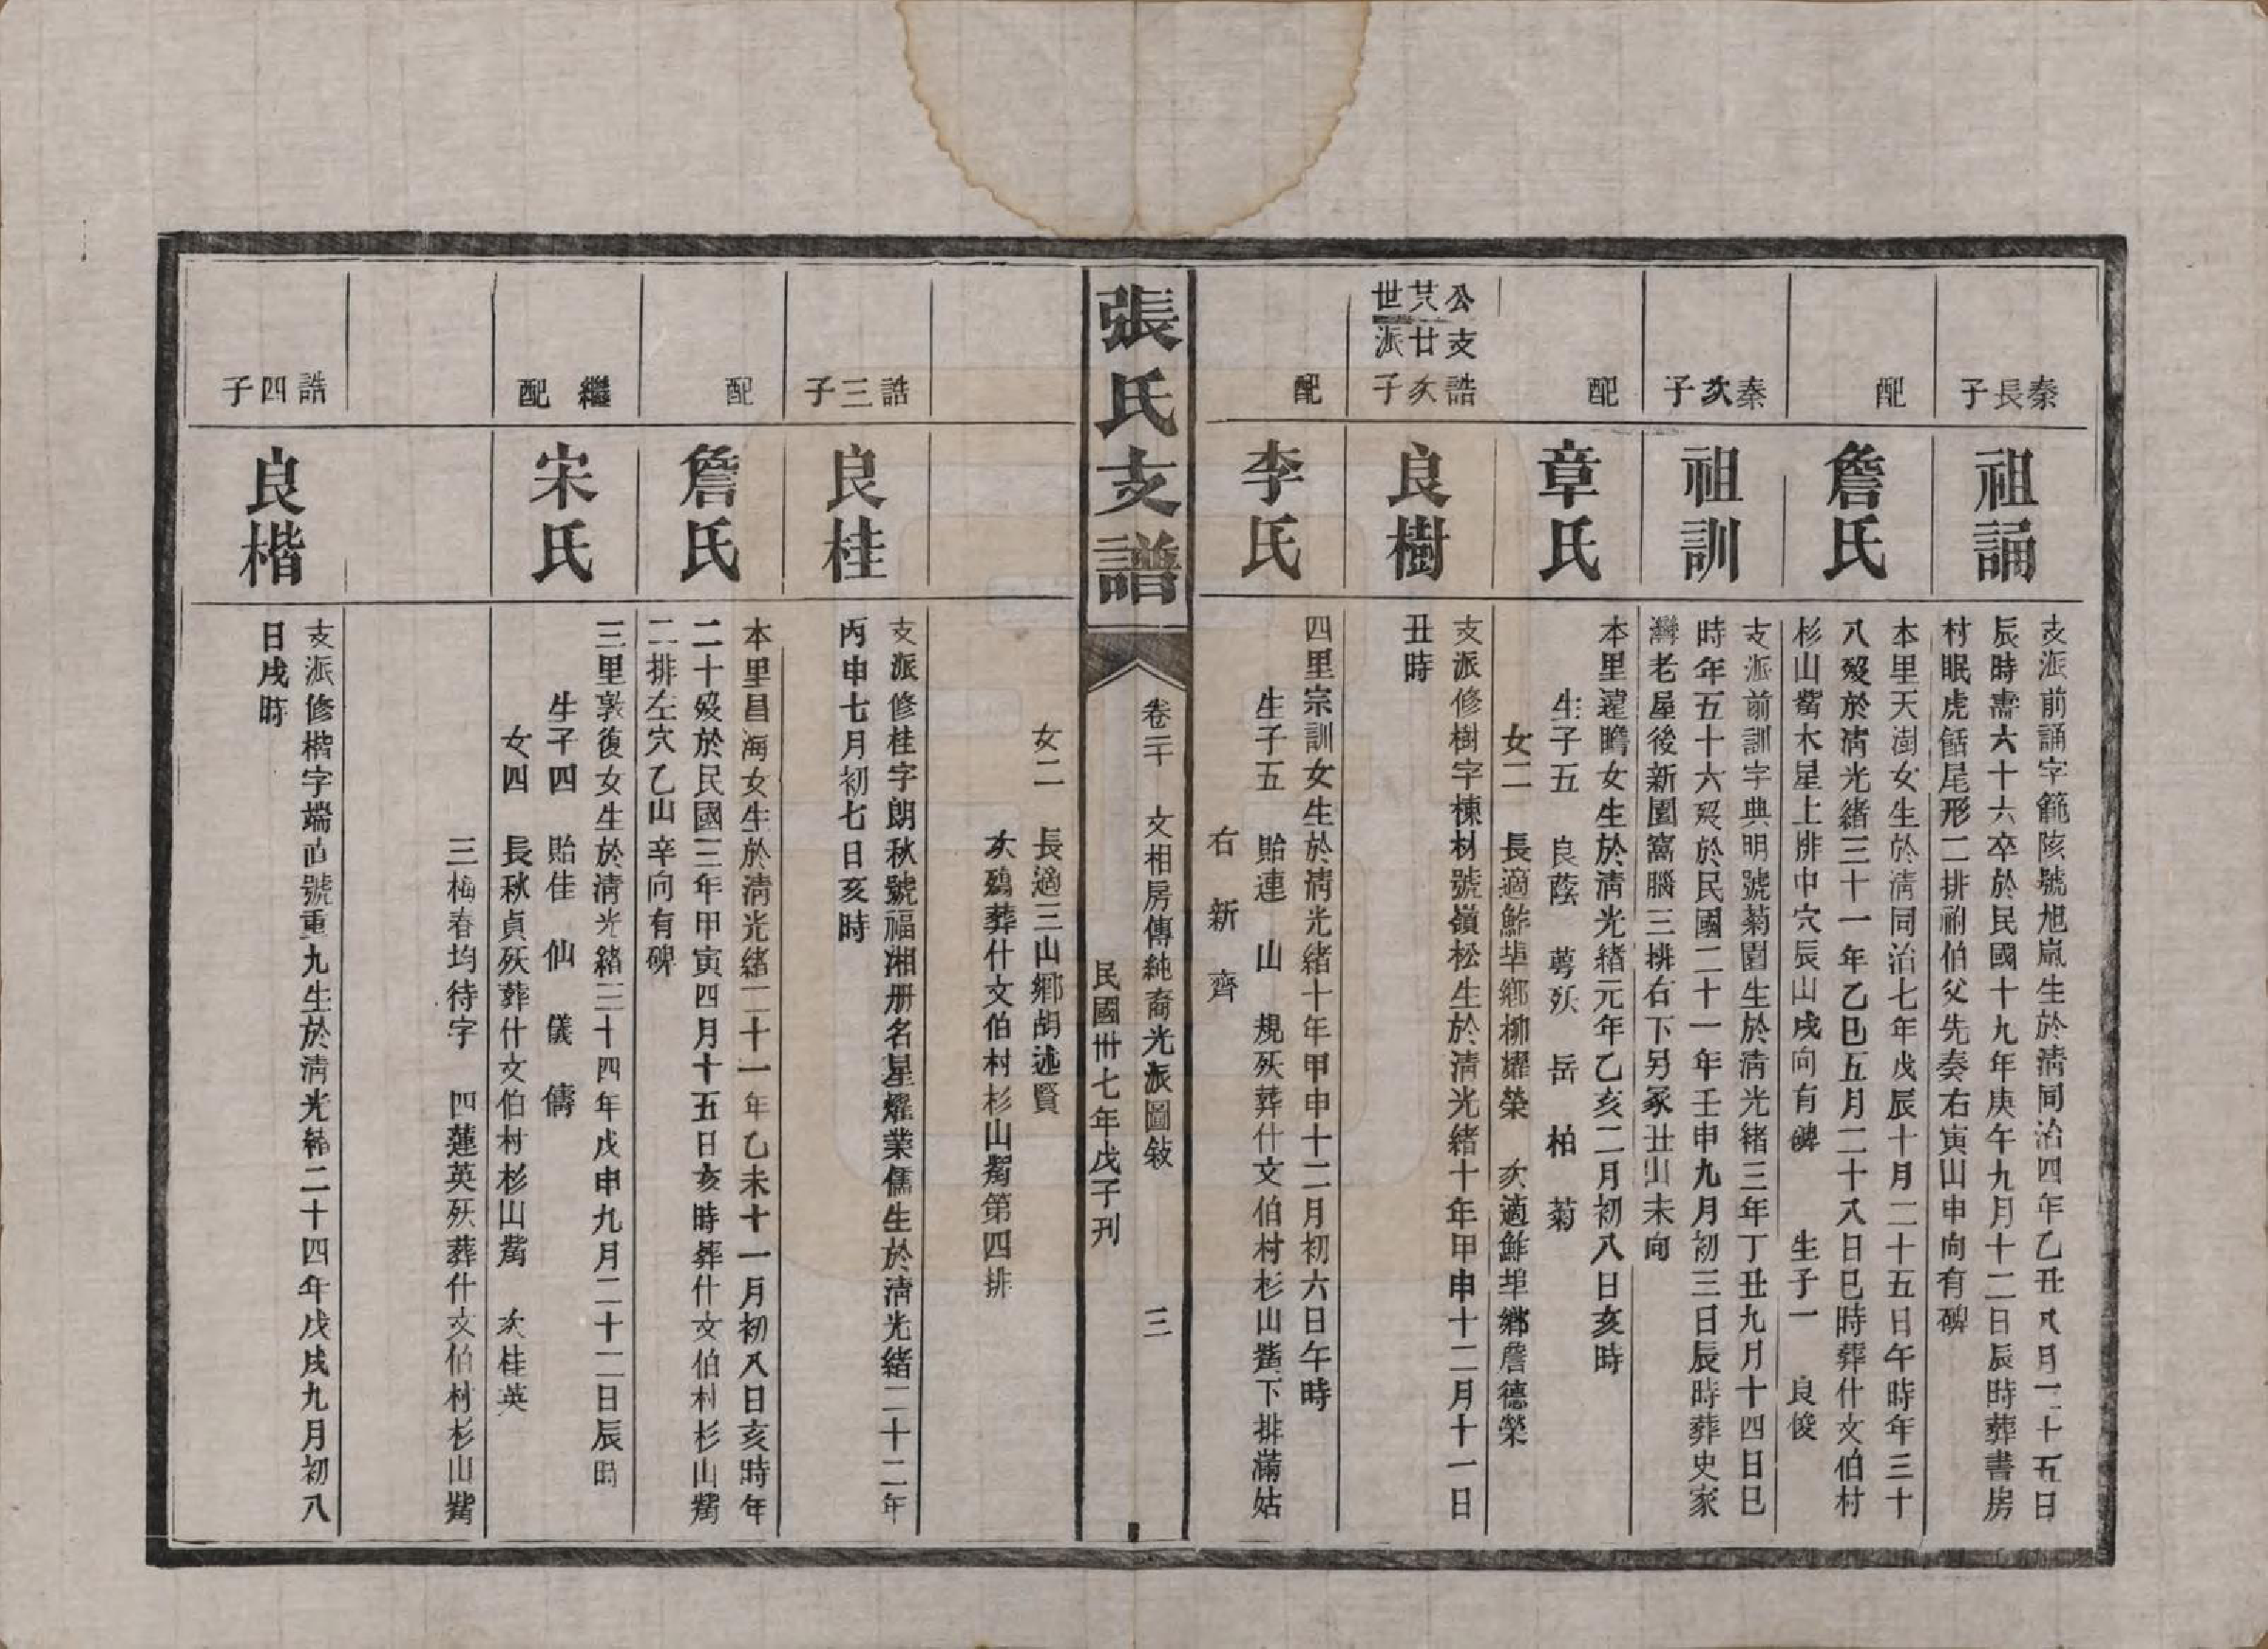 秦長子
祖誦
支派前誦字範陔號旭嵐生於清同治四年乙丑八月二十五日
辰時壽六十六卒於民國十九年庚午九月十二日辰時葬書房
村眠虎餂尾形二排祔伯父先奏右寅山申向有碑
配
詹氏
本里天澍女生於清同治七年戊辰十月二十五日午時年三十
八歿於清光緒三十一年乙巳五月二十八日巳時葬什文伯村
杉山觜木星上排中穴辰山戌向有碑 生子一 良俊
秦次子
祖訓
支派前訓字典明號菊園生於清光緒三年丁丑九月十四日巳
時年五十六歿於民國二十一年壬申九月初三日辰時葬史家
灣老屋後新園窩腦三排右下另冢丑山未向
配
章氏
本里遠瞻女生於清光緒元年乙亥二月初八日亥時
生子五 良蔭 萼殀 岳 柏 菊
女二 長適鮓埠鄉柳耀榮 次適鮓埠鄉詹德榮
公支誥
芃廿次
世派子
良樹
支派修樹字棟材號嶺松生於清光緒十年甲申十二月十一日
丑時
配
李氏
四里宗訓女生於清光緒十年甲申十二月初六日午時
生子五 貽連 山 規殀葬什文伯村杉山觜下排滿姑
右 新 齊
張氏支譜
卷二十 文相房傳純裔光派圖敍 三
民國卅七年戊子刊
女二 長適三山鄉胡述賢
次殤葬什文伯村杉山觜第四排
誥三子
良桂
支派修桂字朗秋號福湘册名星燿業儒生於清光緒二十二年
丙申七月初七日亥時
配
詹氏
本里昌海女生於清光緒二十一年乙未十一月初八日亥時年
二十歿於民國三年甲寅四月十五日亥時葬什文伯村杉山觜
二排左穴乙山辛向有碑
繼配
宋氏
三里敦復女生於清光緒三十四年戊申九月二十二日辰時
生子四 貽佳 仙 儀 儔
女四 長秋貞殀葬什文伯村杉山觜 次桂英
三梅春均待字 四蓮英殀葬什文伯村杉山觜
誥四子
良楷
支派修楷字端直號重九生於清光緒二十四年戊戌九月初八
日戌時